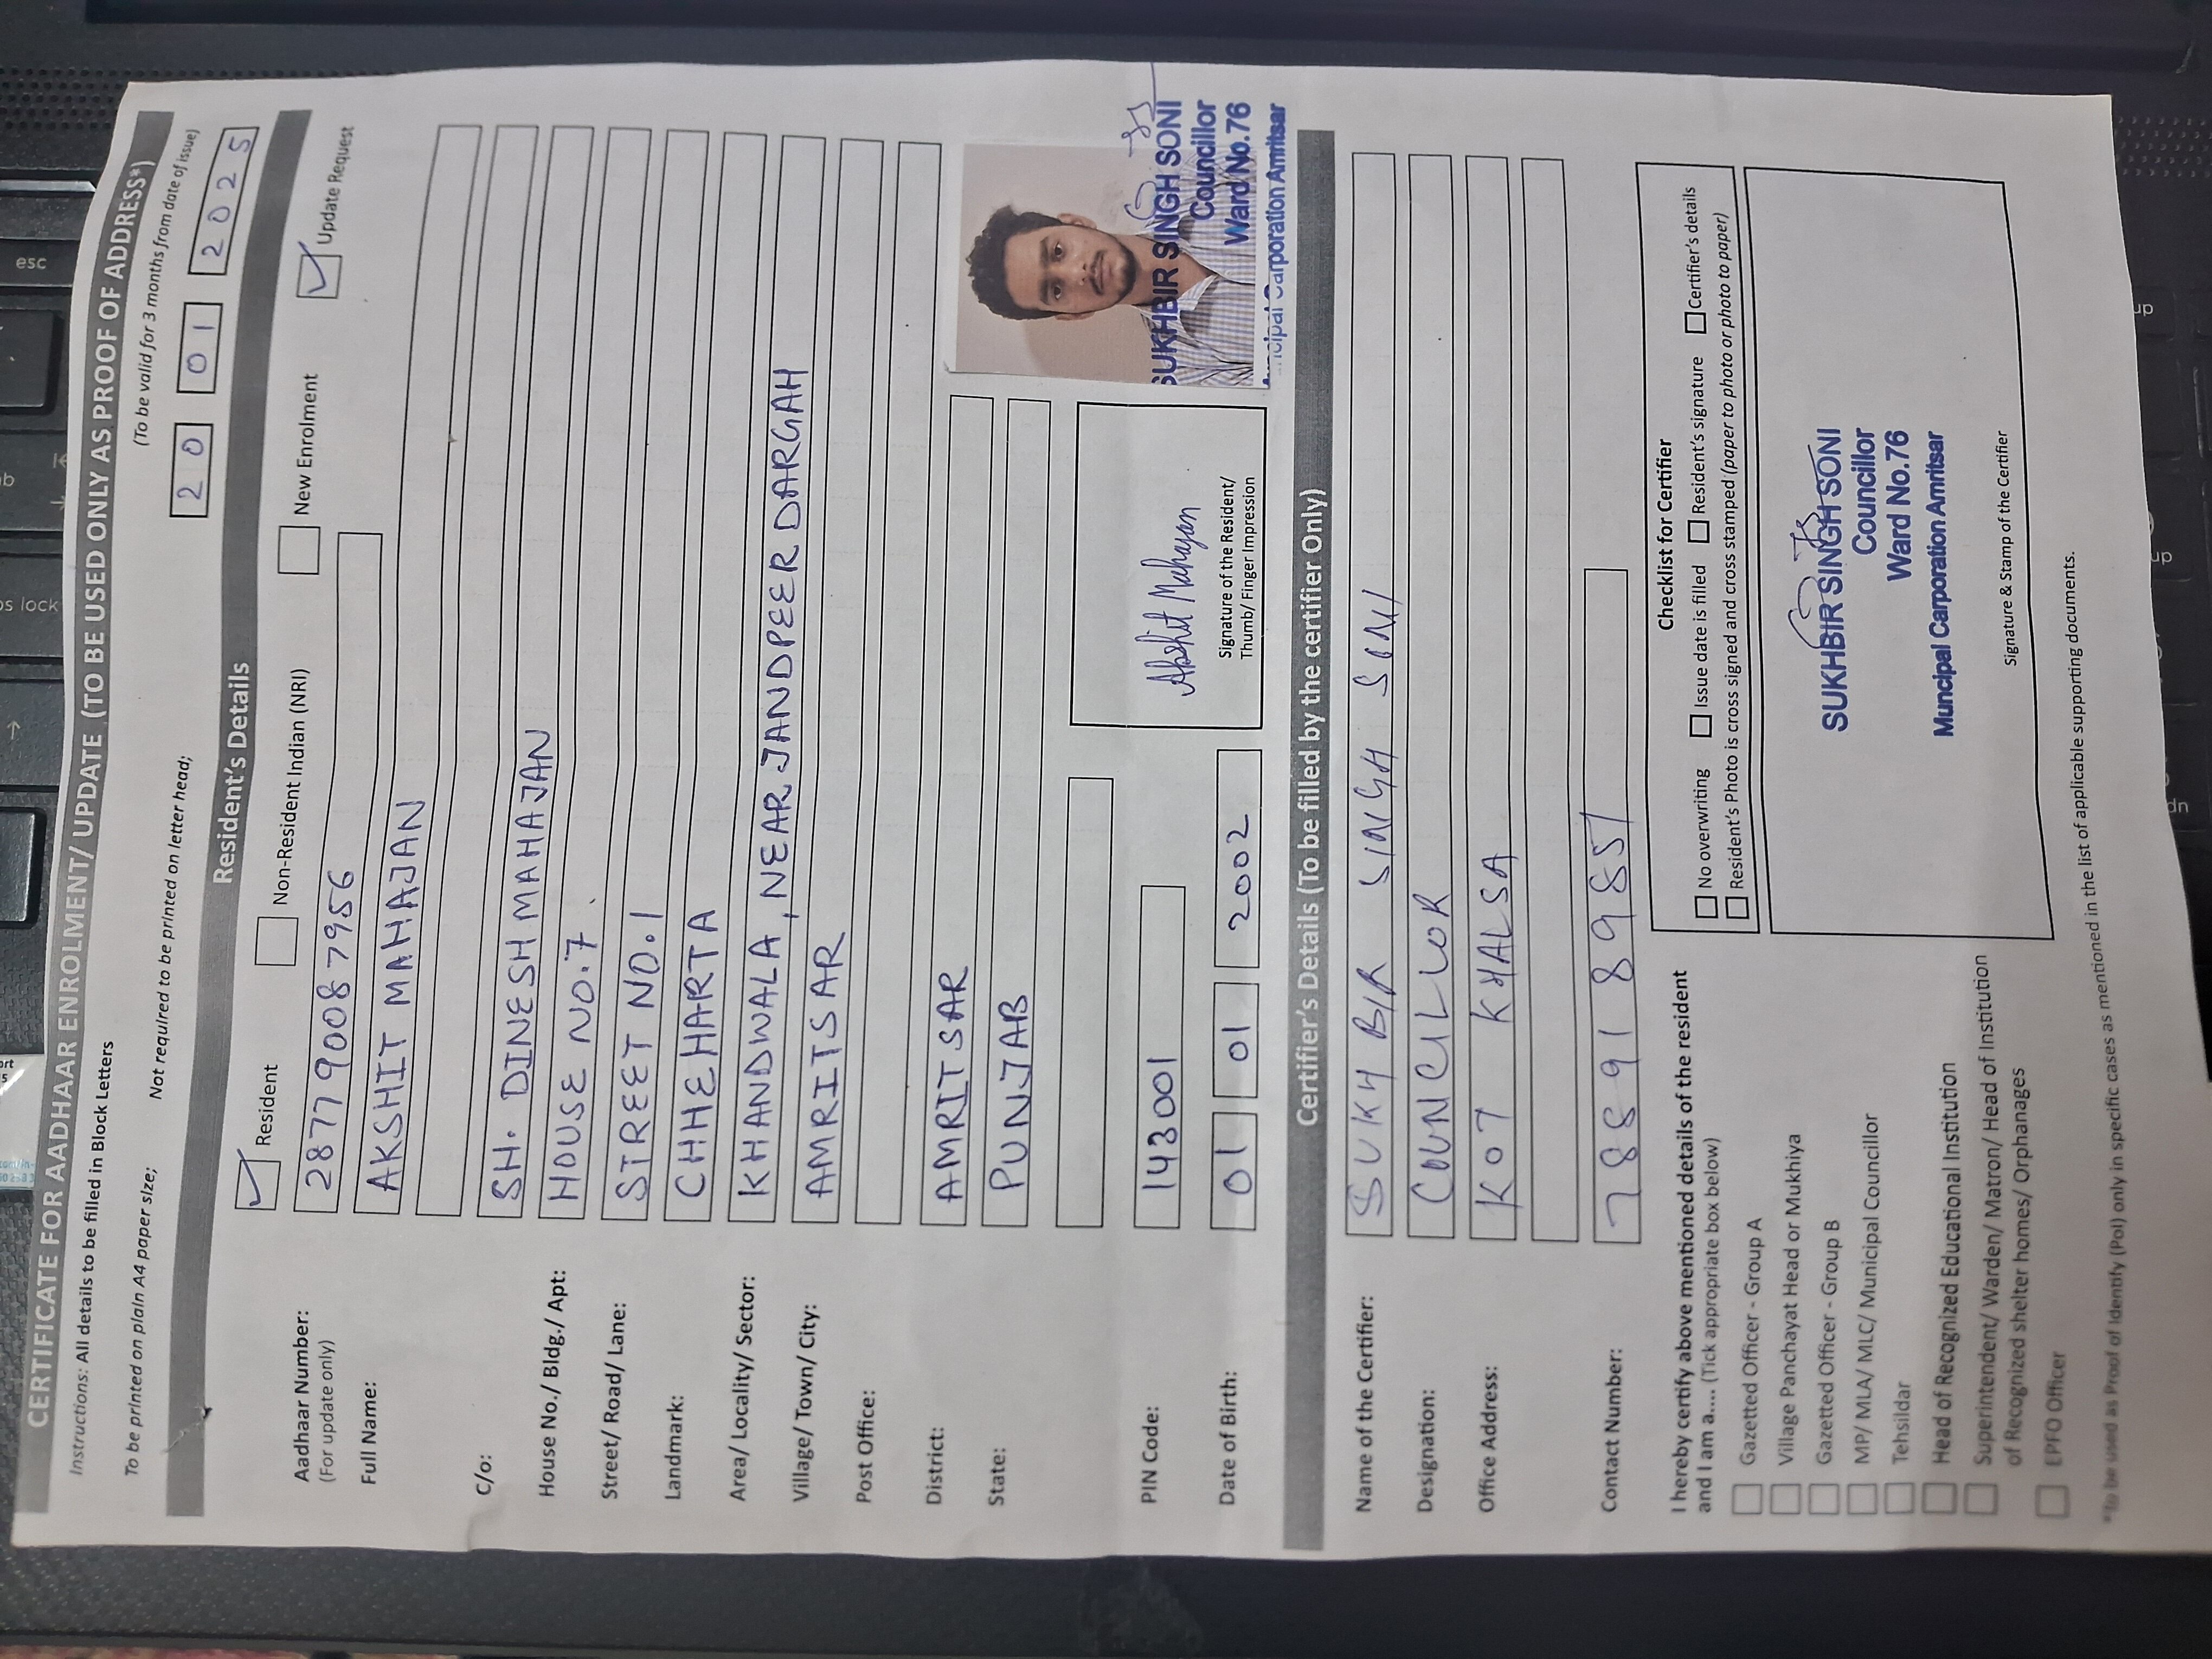 CERTIFICATE FOR AADHAAR ENROLMENT/ UPDATE (TO BE USED ONLY AS PROOF OF ADDRESS*)
Instructions: All details to be filled in Block Letters
(To be valid for 3 months from date of issue)
To be printed on plain A4 paper size; Not required to be printed on letter head;
20 01 2025
Resident's Details
Resident Non-Resident Indian (NRI) New Enrolment Update Request
Aadhaar Number: 287790087956
(For update only)
Full Name: AKSHIT MAHAJAN
C/o: SH. DINESH MAHAJAN
House No./ Bldg./ Apt: HOUSE NO.7
Street/ Road/ Lane: STREET NO.1
Landmark: CHHEHARTA
Area/ Locality/ Sector: KHANDWALA, NEAR JANDPEER DARGAH
Village/ Town/ City: AMRITSAR
Post Office:
District: AMRITSAR
State: PUNJAB
PIN Code: 143001
Date of Birth: 01 01 2002
Akshit Mahajan
Signature of the Resident/
Thumb/ Finger Impression
SUKHBIR SINGH SONI
Councillor
Ward No.76
Carporation Amritsar
Certifier's Details (To be filled by the certifier Only)
Name of the Certifier: SUKHBIR SINGH SONI
Designation: COUNCILLOR
Office Address: KOT KHALSA
Contact Number: 7889189851
I hereby certify above mentioned details of the resident
and I am a.... (Tick appropriate box below)
Gazetted Officer - Group A
Village Panchayat Head or Mukhiya
Gazetted Officer - Group B
MP/ MLA/ MLC/ Municipal Councillor
Tehsildar
Head of Recognized Educational Institution
Superintendent/ Warden/ Matron/ Head of Institution
of Recognized shelter homes/ Orphanages
EPFO Officer
Checklist for Certifier
No overwriting Issue date is filled Resident's signature Certifier's details
Resident's Photo is cross signed and cross stamped (paper to photo or photo to paper)
SUKHBIR SINGH SONI
Councillor
Ward No.76
Muncipal Carporation Amritsar
Signature & Stamp of the Certifier
*To be used as Proof of Identify (PoI) only in specific cases as mentioned in the list of applicable supporting documents.
esc
ps lock
up
up
dn